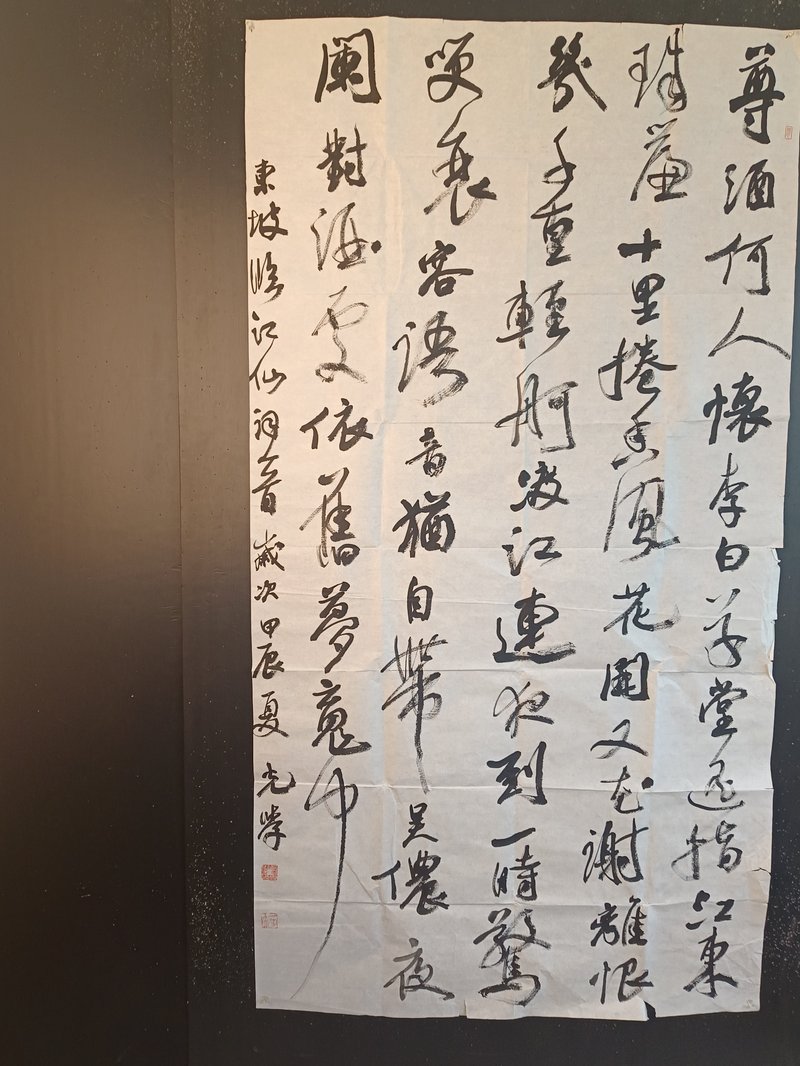 尊酒何人懷李白草堂遥指江東
珠簾十里捲香風花開又花謝離恨
幾千重輕舸渡江連夜到一時驚
笑衰容語音猶自帶吳儂夜
闌對酒處依舊夢魂中
東坡臨江仙詞一首 歲次甲辰夏 光